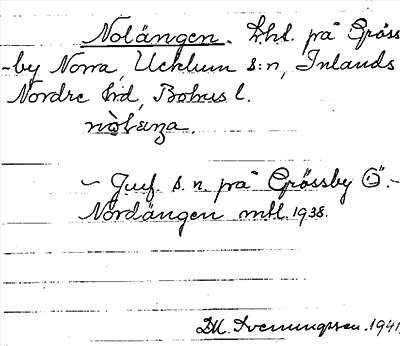 Nolängen. Lht. på Gröss
-by Norra, Ucklum s:n, Inlands
Nordre hd, Bohus l.
— Juf. s. n. på Grössby Ö. –
Nordängen mtl. 1938.
D.H. Svenungsson. 1941